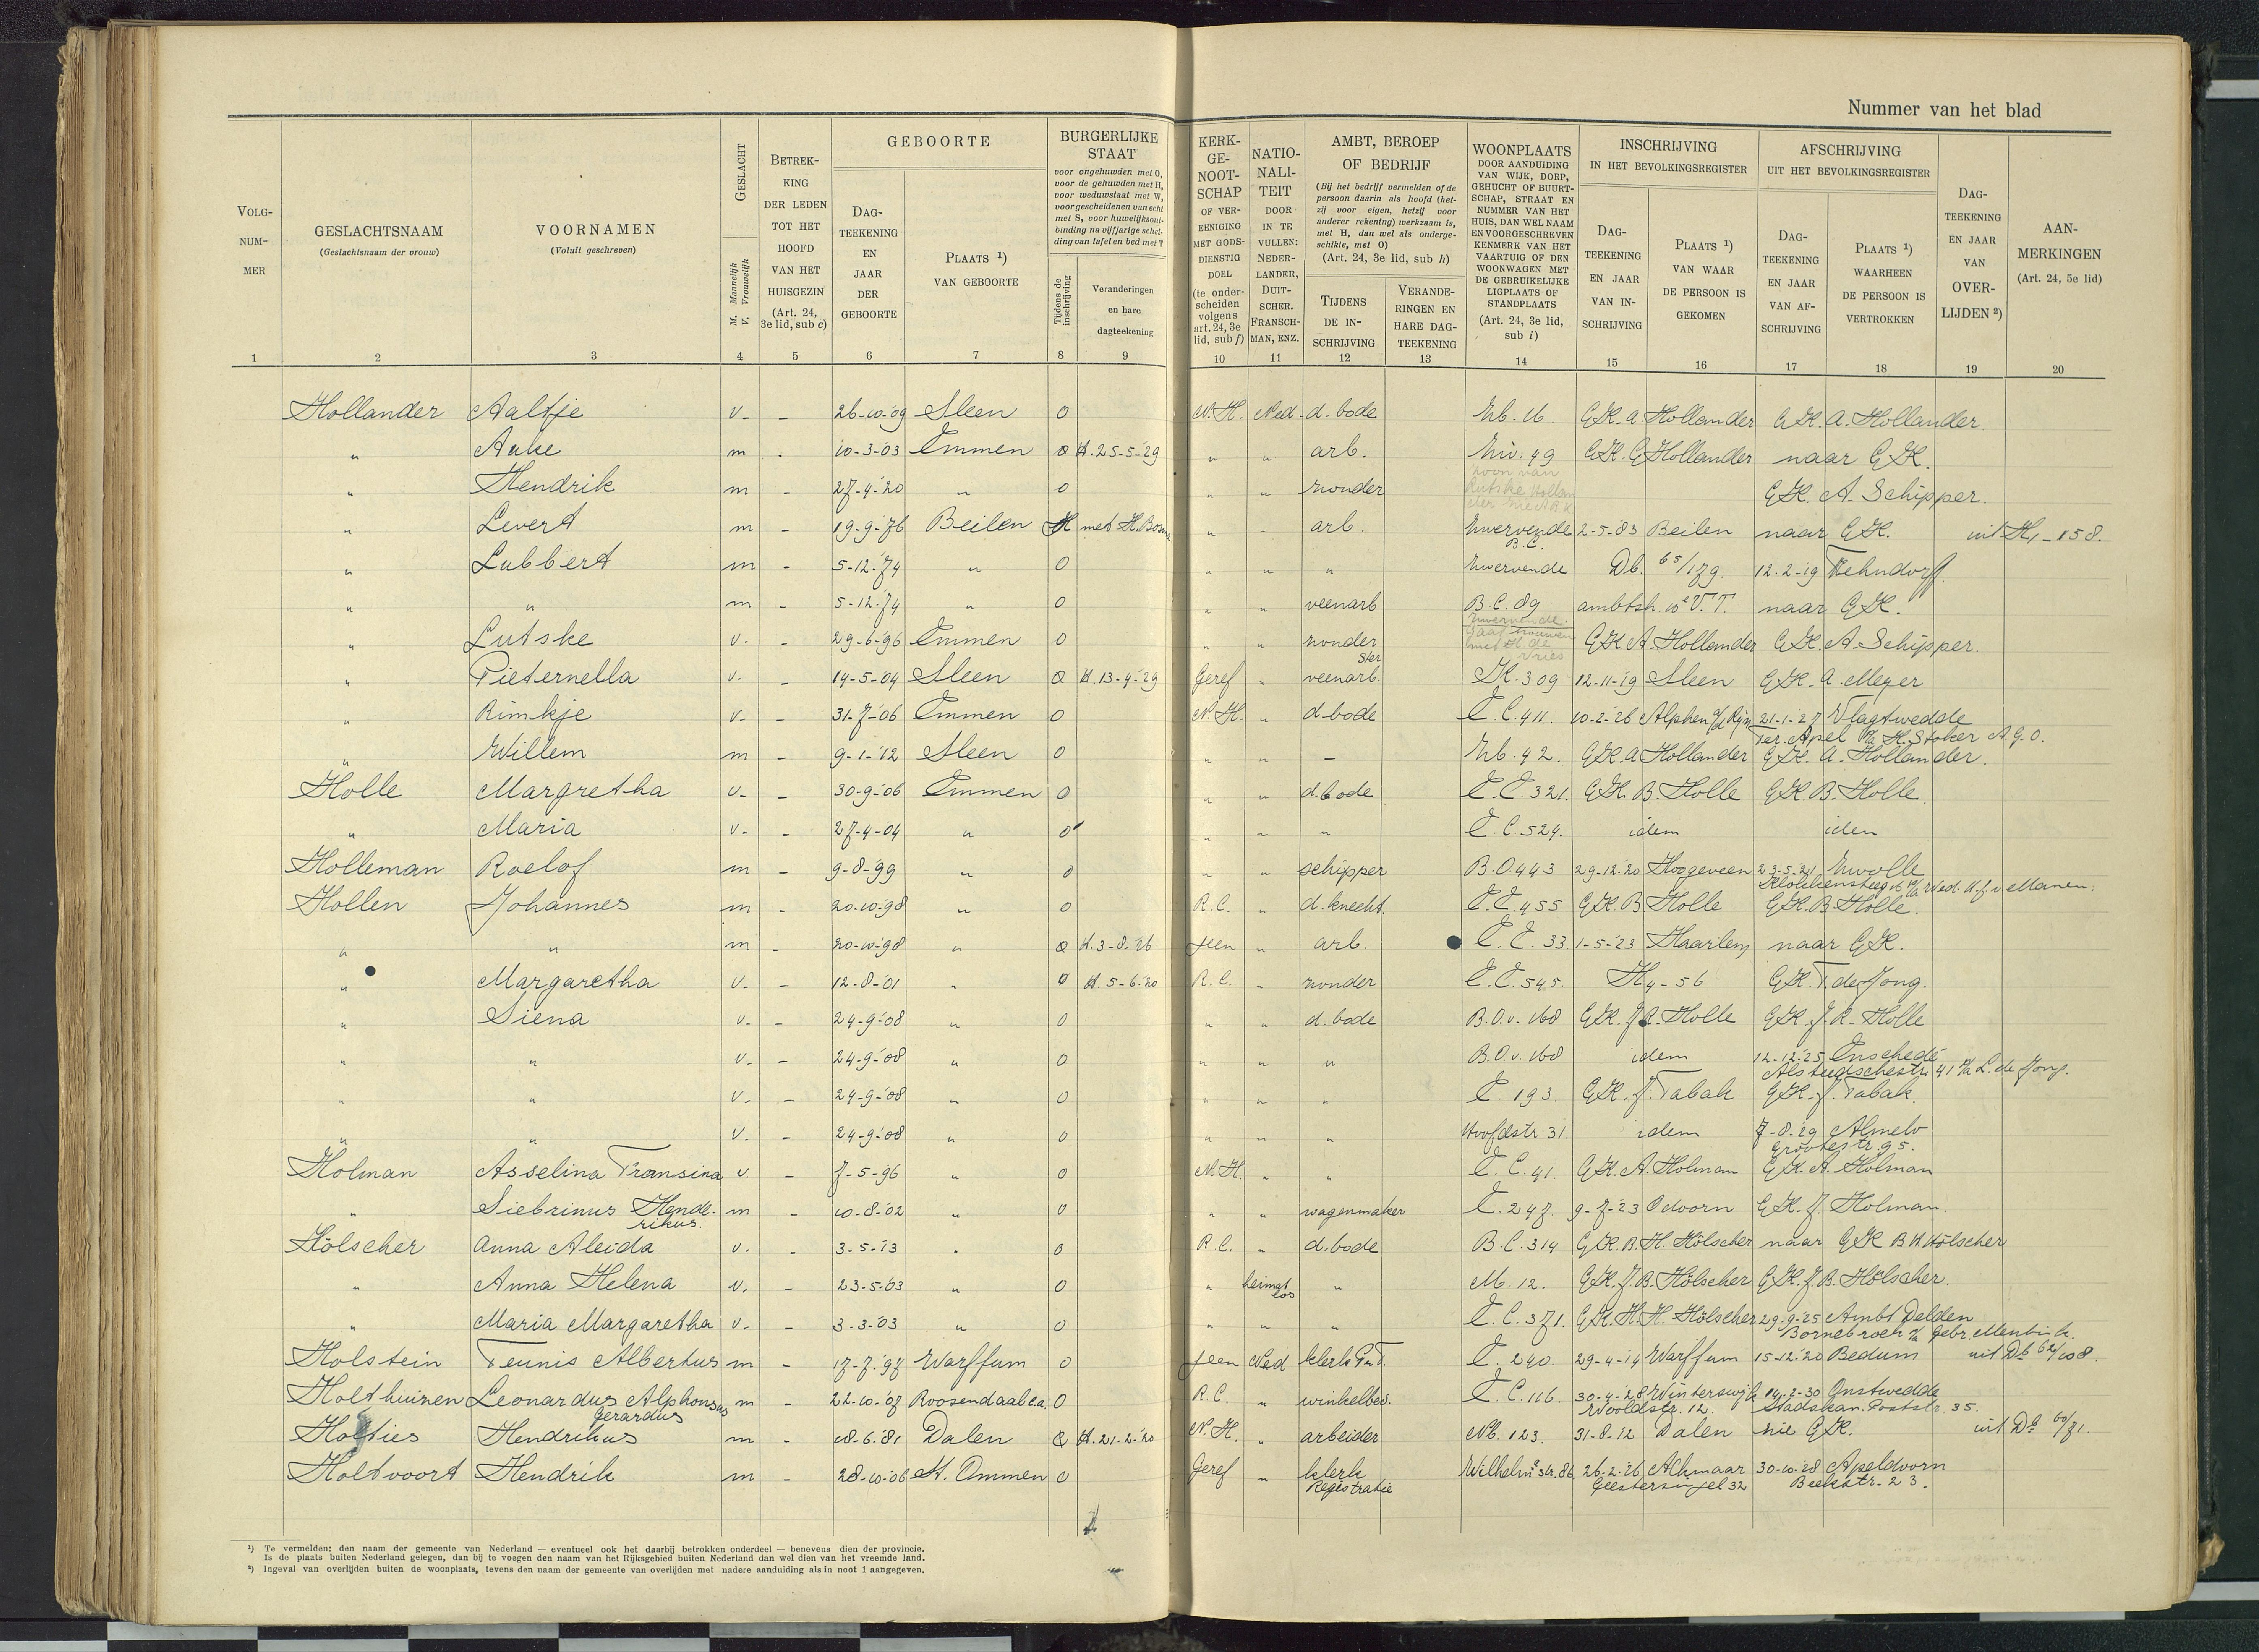 Nummer van het blad
VOLGNUMMER
GESLACHTSNAAM (Geslachtsnaam der vrouw)
VOORNAMEN (Voluit geschreven)
GESLACHT M. Mannelijk V. Vrouwelijk
BETREKKING DER LEDEN TOT HET HOOFD VAN HET HUISGEZIN (Art. 24, 3e lid, sub c)
GEBOORTE
DAGTEEKENING EN JAAR DER GEBOORTE
PLAATS 1) VAN GEBOORTE
BURGERLIJKE STAAT
voor ongehuwden met O, voor de gehuwden met H, voor weduwstaat met W, voor gescheidenen van echt met S, voor huwelijksontbinding na vijfjarige scheiding van tafel en bed met T
Tijdens de inschrijving
Veranderingen en hare dagteekening
KERKGENOOTSCHAP OF VEREENIGING MET GODSDIENSTIG DOEL (te onderscheiden volgens art. 24, 3e lid, sub f)
NATIONALITEIT DOOR IN TE VULLEN: NEDERLANDER, DUITSCHER, FRANSCHMAN, ENZ.
AMBT, BEROEP OF BEDRIJF
(Bij het bedrijf vermelden of de persoon daarin als hoofd (hetzij voor eigen, hetzij voor anderer rekening) werkzaam is, met H, dan wel als ondergeschikte, met O)
(Art. 24, 3e lid, sub h)
TIJDENS DE INSCHRIJVING
VERANDERINGEN EN HARE DAGTEEKENING
WOONPLAATS DOOR AANDUIDING VAN WIJK, DORP, GEHUCHT OF BUURTSCHAP, STRAAT EN NUMMER VAN HET HUIS, DAN WEL NAAM EN VOORGESCHREVEN KENMERK VAN HET VAARTUIG OF DEN WOONWAGEN MET DE GEBRUIKELIJKE LIGPLAATS OF STANDPLAATS (Art. 24, 3e lid, sub i)
INSCHRIJVING IN HET BEVOLKINGSREGISTER
DAGTEEKENING EN JAAR VAN INSCHRIJVING
PLAATS 1) VAN WAAR DE PERSOON IS GEKOMEN
AFSCHRIJVING UIT HET BEVOLKINGSREGISTER
DAGTEEKENING EN JAAR VAN AFSCHRIJVING
PLAATS 1) WAARHEEN DE PERSOON IS VERTROKKEN
DAGTEEKENING EN JAAR VAN OVERLIJDEN 2)
AANMERKINGEN (Art. 24, 5e lid)
1 2 3 4 5 6 7 8 9 10 11 12 13 14 15 16 17 18 19 20
Hollander Aaltje v. - 26-10-'09 Sleen O N.H. Ned. d. bode G.K. A. Hollander G.K. A. Hollander
" Auke m - 10-3-'03 Emmen O H. 25-5-'29 " " arb. G.K. G Hollander naar G.K.
" Hendrik m - 27-4-'20 " O " " zonder zoon van G.K. A. Schipper.
" Levert m - 19-9-'76 Beilen H met H. " - arb. Zwervende B.C. 2-5-83 Beilen naar G.K. uit H1-158.
" Lubbert m - 5-12-'74 " O " " " Zwervende Db. 65/179. 12-2-19 Fehndorf
" " m - 5-12-'74 " O " " veenarb B.C. 89 Zwervende. ambtsh. V.T. naar G.K.
" Lutske v. - 29-6-'96 Emmen O " " zonder gaat trouwen met de Vries G.K. A. Hollander G.K. A. Schipper.
" Pieternella v. - 14-5-'04 Sleen O H. 13-4-'29 Geref " veenarb. ster K. 309 12-11-'19 Sleen G.K. A. Meyer
" Rimkje v. - 31-7-'06 Emmen O N.H. " d-bode E.C. 411. 10-2-'26 Alphen a/d Rijn 21-1-'27 Vlagtwedde
Ter Apel p/a H. Stoker A.G.O.
" Willem m - 9-1-'12 Sleen O " " - 42. G.K. A Hollander G.K. A. Hollander.
Holle Margretha v. - 30-9-'06 Emmen O " " d.bode E.E. 321. G.K. B. Holle G.K. B. Holle
" Maria v. - 27-4-'04 " O " " " E.C. 524. idem idem
Holleman Roelof m - 9-8-'99 " O " " schipper B.O. 443 29-12-'20 Hoogeveen 23-5-'21 Zwolle
Hollen Johannes m - 20-10-'98 " O R.C. " d. knecht. E.E. 455 G.K. B Holle G.K. B. Holle.
" " m - 20-10-'98 " O H. 3-8-'26 geen " arb. E.E. 33 1-5-'23 Haarlem naar G.K.
" Margaretha v. - 12-8-'01 " O H. 5-6-'20 R.C. " zonder E.E. 545. H4-56 G.K. T. de Jong.
" Siena v. - 24-9-'08 " O " " d. bode B.O.v. 168 G.K. J.R. Holle G.K. J.R. Holle
" " v. - 24-9-'08 " O " " " B.O.v. 168 idem 12-12-'25 Enschedé
41 p/a L. de Jong.
" " v. - 24-9-'08 " O " " " E. 193 G.K. J. Tabak G.K. J. Tabak.
" " v. - 24-9-'08 " O " " " Hoofdstr. 31 idem 7-8-'29 Almelo
Grootestr. 95.
Holman Asselina Fransina v. - 7-5-'96 " O N.H. " " E.C. 41. G.K. A. Holman G.K. A. Holman
" Siebrinus Henderikus. m - 10-8-'02 " O " " wagenmaker E. 247. 9-7-'23 Odoorn G.K. J. Holman.
Hölscher Anna Aleida v. - 3-5-'13 " O R.C. " d.bode B.C. 314 G.K. B.H. Hölscher naar G.K. B H Hölscher
" Anna Helena v. - 23-5-'03 " O " heimatlos " M. 12. G.K. J.B. Hölscher G.K. J.B. Hölscher.
" Maria Margaretha v. - 3-3-'03 " O " " " E.C. 371. G.K. H.H. Hölscher 29-9-'25 Ambt Delden
Bornebroek p/a Gebr.
Holstein Teunis Albertus m - 17-7-'97 Warffum O geen Ned klerk P.e.T. E. 240. 29-4-'19 Warffum 15-12-'20 Bedum uit Db 62/108.
Holthuizen Leonardus Alphonsus Gerardus m - 22-10-'07 Roosendaal c.a. O R.C. " winkelbed. E.C. 116 30-4-'28 Winterswijk 14-2-30 Onstwedde
Wooldstr. 12. Stadskan. Poststr. 35.
Holties Hendrikus m - 18-6-'81 Dalen O H. 21-2-'20 N.H. " arbeider NB. 123. 31-8-'12 Dalen zie G.K. uit Db 60/71.
Holtvoort Hendrik m - 28-10-'06 St. Ommen O Geref " klerk Registratie Wilhelmastr. 86 26-2-'26 Alkmaar 30-10-'28 Apeldoorn
Geestersingel 32 Beekstr. 23.
1) Te vermelden: den naam der gemeente van Nederland — eventueel ook het daarbij betrokken onderdeel — benevens dien der provincie.
Is de plaats buiten Nederland gelegen, dan bij te voegen den naam van het Rijksgebied buiten Nederland dan wel dien van het vreemde land.
2) Ingeval van overlijden buiten de woonplaats, tevens den naam der gemeente van overlijden met nadere aanduiding als in noot 1 aangegeven.